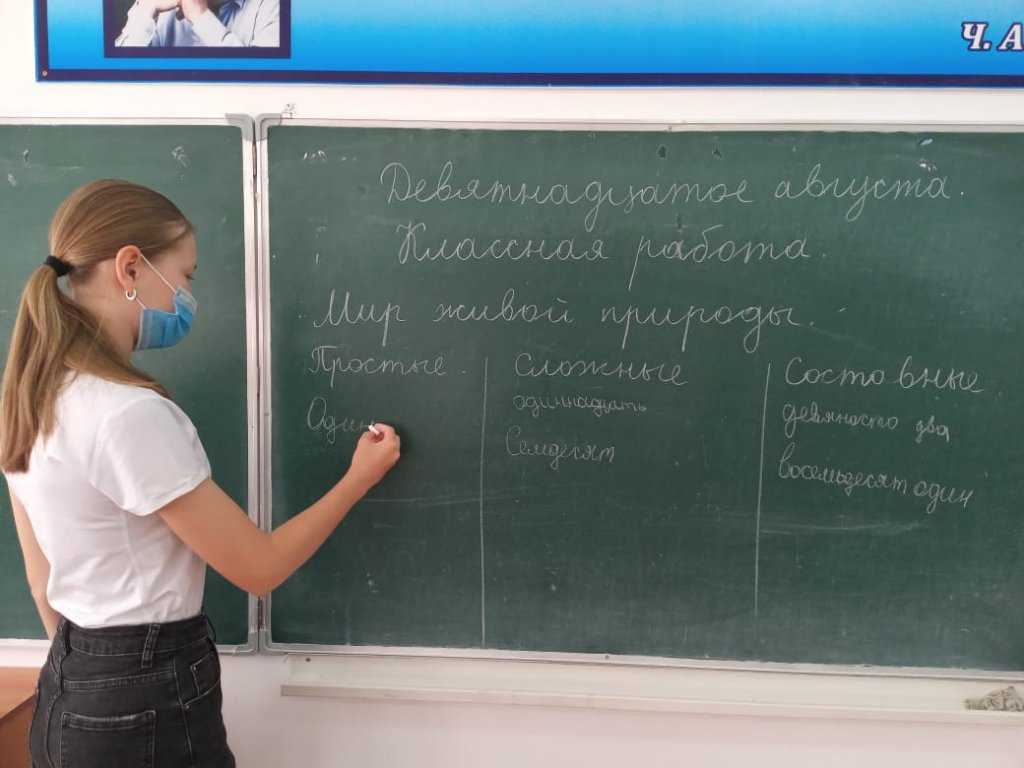 Ч. А
Девятнадцатое августа.
Классная работа.
Мир живой природы.
Простые.
Один
Сложные
одиннадцать
Семдесят
Составные
девяносто два
восемьдесят один